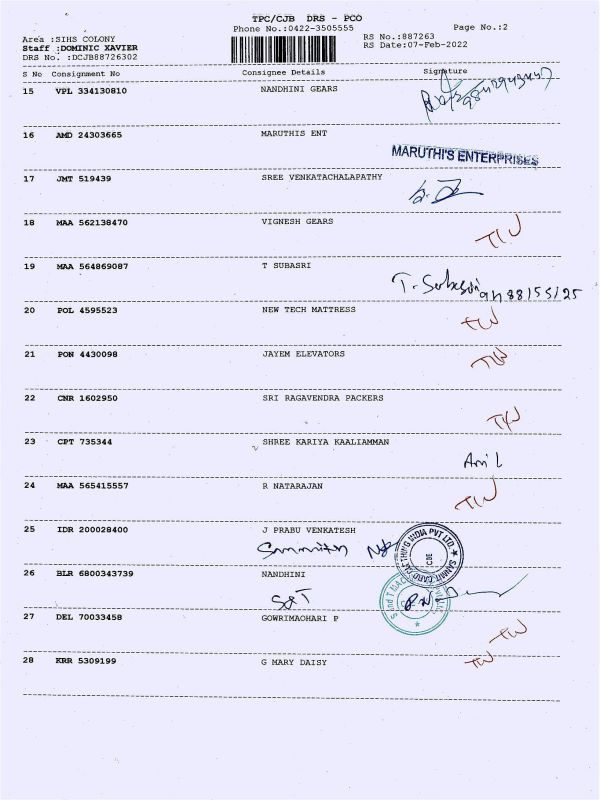 TPC/CJB DRS - PCO
Phone No.:0422-3505555
Page No.:2
Area :SIHS COLONY
RS No.:887263
Staff :DOMINIC XAVIER
RS Date:07-Feb-2022
DRS No. :DCJB88726302
S No Consignment No Consignee Details Signature
15 VPL 334130810 NANDHINI GEARS
16 AMD 24303665 MARUTHIS ENT
MARUTHI'S ENTERPRISES
17 JMT 519439 SREE VENKATACHALAPATHY
18 MAA 562138470 VIGNESH GEARS
19 MAA 564869087 T SUBASRI
T. Subasri
20 POL 4595523 NEW TECH MATTRESS
21 PON 4430098 JAYEM ELEVATORS
22 CNR 1602950 SRI RAGAVENDRA PACKERS
23 CPT 735344 SHREE KARIYA KAALIAMMAN
Anil
24 MAA 565415557 R NATARAJAN
25 IDR 200028400 J PRABU VENKATESH
26 BLR 6800343739 NANDHINI
S&T
27 DEL 70033458 GOWRIMAOHARI P
28 KRR 5309199 G MARY DAISY